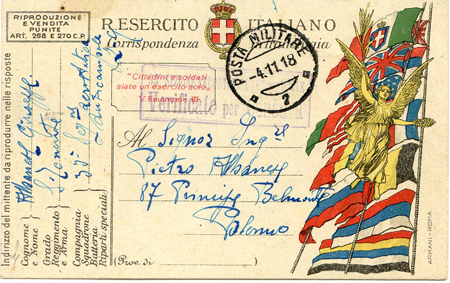 RIPRODUZIONE
E VENDITA
PUNITE
ART. 268 E 270 C.P.
R. ESERCITO ITALIANO
Corrispondenza in franchigia
POSTA MILITARE
- 4.11.18
2
"Cittadini e soldati
siate un esercito solo„
V. Emanuele III.
Verificato per
Al Signor Ing.re
Pietro Albanese
87 Principe Belmonte
Palermo
(Prov. di)
Indirizzo del mittente da riprodurre nelle risposte
Cognome
e Nome
Grado
Reggimento
e Arma
Compagnia
Squadrone
Batteria
Riparti speciali
ARMANI - ROMA